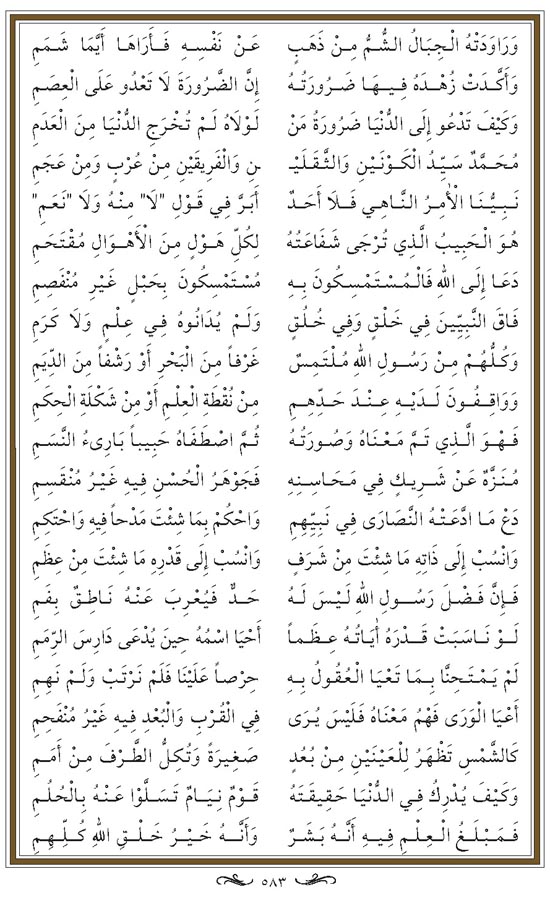 وَرَاوَدَتْهُ الْجِبَالُ الشُّمُّ مِنْ ذَهَبٍ عَنْ نَفْسِهِ فَأَرَاهَا أَيَّمَا شَمَمِ
وَأَكَّدَتْ زُهْدَهُ فِيهَا ضَرُورَتُهُ إِنَّ الضَّرُورَةَ لَا تَعْدُو عَلَى الْعِصَمِ
وَكَيْفَ تَدْعُو إِلَى الدُّنْيَا ضَرُورَةُ مَنْ لَوْلَاهُ لَمْ تُخْرَجِ الدُّنْيَا مِنَ الْعَدَمِ
مُحَمَّدٌ سَيِّدُ الْكَوْنَيْنِ وَالثَّقَلَيْـ ـنِ وَالْفَرِيقَيْنِ مِنْ عُرْبٍ وَمِنْ عَجَمِ
نَبِيُّنَا الْأٰمِرُ النَّاهِي فَلَا أَحَدٌ أَبَرَّ فِي قَوْلِ "لَا" مِنْهُ وَلَا "نَعَمِ"
هُوَ الْحَبِيبُ الَّذِي تُرْجَى شَفَاعَتُهُ لِكُلِّ هَوْلٍ مِنَ الْأَهْوَالِ مُقْتَحَمِ
دَعَا إِلَى اللهِ فَالْمُسْتَمْسِكُونَ بِهِ مُسْتَمْسِكُونَ بِحَبْلٍ غَيْرِ مُنْفَصِمِ
فَاقَ النَّبِيِّينَ فِي خَلْقٍ وَفِي خُلُقٍ وَلَمْ يُدَانُوهُ فِي عِلْمٍ وَلَا كَرَمِ
وَكُلُّهُمْ مِنْ رَسُولِ اللهِ مُلْتَمِسٌ غَرْفاً مِنَ الْبَحْرِ أَوْ رَشْفاً مِنَ الدِّيَمِ
وَوَاقِفُونَ لَدَيْهِ عِنْدَ حَدِّهِمِ مِنْ نُقْطَةِ الْعِلْمِ أَوْ مِنْ شَكْلَةِ الْحِكَمِ
فَهْوَ الَّذِي تَمَّ مَعْنَاهُ وَصُورَتُهُ ثُمَّ اصْطَفَاهُ حَبِيباً بَارِىءُ النَّسَمِ
مُنَزَّهٌ عَنْ شَرِيكٍ فِي مَحَاسِنِهِ فَجَوْهَرُ الْحُسْنِ فِيهِ غَيْرُ مُنْقَسِمِ
دَعْ مَا ادَّعَتْهُ النَّصَارَى فِي نَبِيِّهِمِ وَاحْكُمْ بِمَا شِئْتَ مَدْحاً فِيهِ وَاحْتَكِمِ
وَانْسُبْ إِلَى ذَاتِهِ مَا شِئْتَ مِنْ شَرَفٍ وَانْسُبْ إِلَى قَدْرِهِ مَا شِئْتَ مِنْ عِظَمِ
فَإِنَّ فَضْلَ رَسُولِ اللهِ لَيْسَ لَهُ حَدٌّ فَيُعْرِبَ عَنْهُ نَاطِقٌ بِفَمِ
لَوْ نَاسَبَتْ قَدْرَهُ أٰيَاتُهُ عِظَماً أَحْيَا اسْمُهُ حِينَ يُدْعَى دَارِسَ الرِّمَمِ
لَمْ يَمْتَحِنَّا بِمَا تَعْيَا الْعُقُولُ بِهِ حِرْصاً عَلَيْنَا فَلَمْ نَرْتَبْ وَلَمْ نَهِمِ
أَعْيَا الْوَرَى فَهْمُ مَعْنَاهُ فَلَيْسَ يُرَى فِي الْقُرْبِ وَالْبُعْدِ فِيهِ غَيْرُ مُنْفَحِمِ
كَالشَّمْسِ تَظْهَرُ لِلْعَيْنَيْنِ مِنْ بُعُدٍ صَغِيرَةً وَتُكِلُّ الطَّرْفَ مِنْ أَمَمِ
وَكَيْفَ يُدْرِكُ فِي الدُّنْيَا حَقِيقَتَهُ قَوْمٌ نِيَامٌ تَسَلَّوْا عَنْهُ بِالْحُلُمِ
فَمَبْلَغُ الْعِلْمِ فِيهِ أَنَّهُ بَشَرٌ وَأَنَّهُ خَيْرُ خَلْقِ اللهِ كُلِّهِمِ
٥٨٣